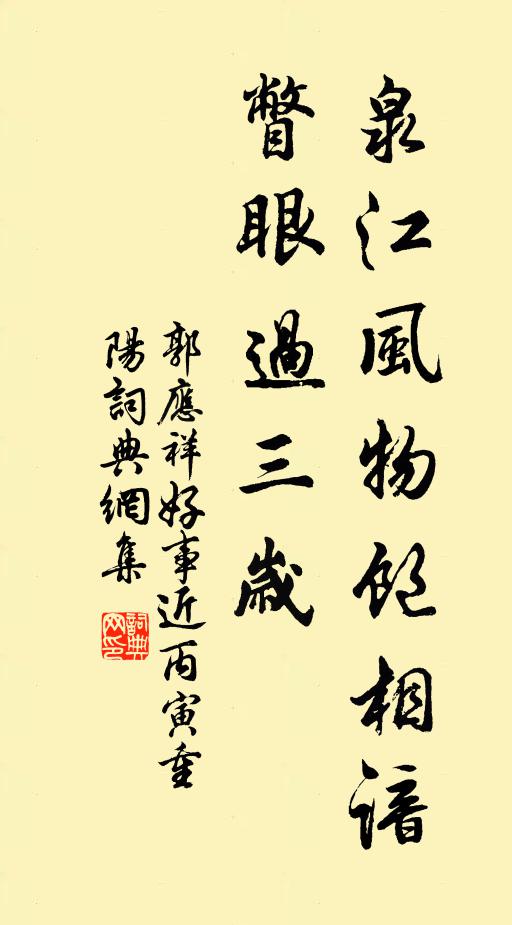 泉江風物飽相諳
瞥眼過三歲
郭應祥好事近丙寅重
陽詞典網集
詞典網印